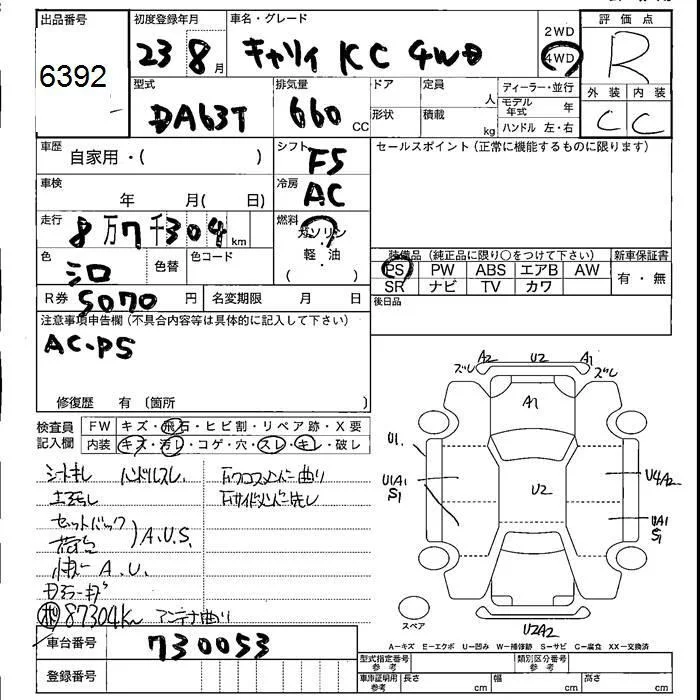 出品番号
6392
初度登録年月
23 8 月
車名・グレード
キャリィ KC 4WD
2WD
4WD
評価点
R
外装 内装
C C
型式
DA63T
排気量
660 CC
ドア
定員
人
形状
積載
kg
ディーラー・並行
モデル年式 年
ハンドル 左・右
車歴
自家用・( )
シフト
F5
セールスポイント(正常に機能するものに限ります)
車検
年 月( 日)
冷房
AC
走行
8万7千304km
燃料
ガソリン
・
軽油
( )
色
シロ
色替
色コード
装備品(純正品に限り○をつけて下さい)
新車保証書
PS PW ABS エアB AW
SR ナビ TV カワ
有・無
R券 5070 円
名変期限 月 日
後日品
注意事項申告欄(不具合内容等は具体的に記入して下さい)
AC・PS
修復歴 有〔箇所 〕
検査員
記入欄
FW キズ・飛石・ヒビ割・リペア跡・X要
内装 キズ・汚レ・コゲ・穴・スレ・キレ・破レ
シートキレ ハンドルスレ
セットバック
荷台
A.U.S.
A.U.
87304km アンテナ曲り
車台番号
730053
登録番号
A2 U2 A1
ズレ ズレ
A1
U1
U1A1
S1
U2
U4A2
U1A1
S1
U2A2
スペア
A-キズ E-エクボ U-凹み W-補修跡 S-サビ C-腐食 XX-交換済
型式指定番号
参考
類別区分番号
参考
車庫証明用
参考
長さ cm 幅 cm 高さ cm